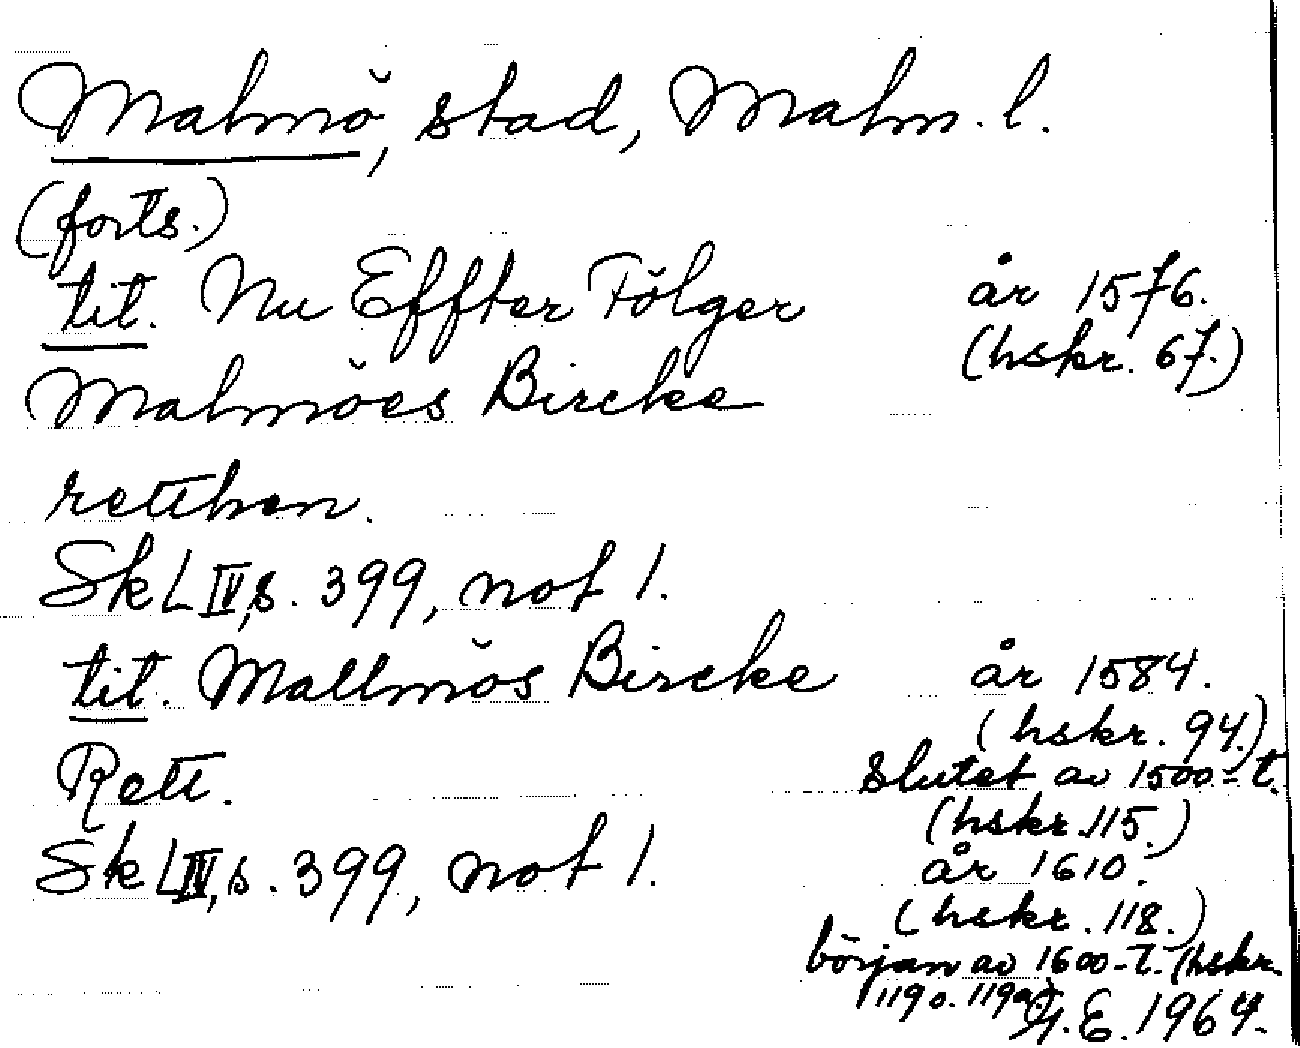 Malmö, stad, Malm. l.
(forts.)
tit. Nu Effter Fölger år 1576.
(hskr. 67.)
Malmöes Bircke
retthen.
SkL IV, s. 399, not 1.
tit. Mallmös Bircke år 1584.
(hskr. 94.)
Rett. slutet av 1500-t.
(hskr. 115.)
SkL IV, s. 399, not 1. år 1610.
(hskr. 118.)
början av 1600-t. (hskr.
119 o. 119a.)
G.E. 1964.